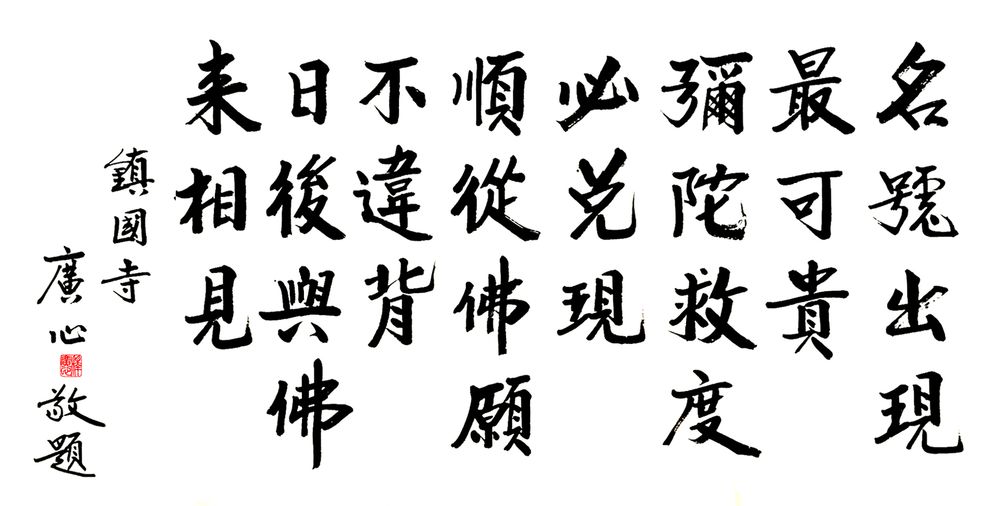 名號出現
最可貴
彌陀救度
必兑現
順從佛願
不違背
日後與佛
来相見
鎮國寺
廣心敬題